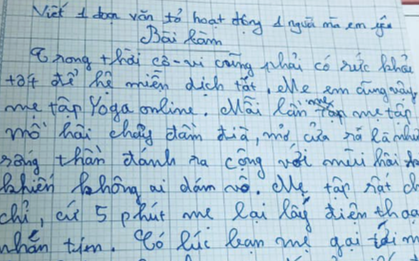 Viết 1 đoạn văn tả hoạt động 1 người mà em yêu
Bài làm
Trong thời cô-vi cũng phải có sức khỏe
tốt để hệ miễn dịch tốt. Mẹ em cũng vậy,
mẹ tập Yoga online. Mỗi lần mẹ tập
mồ hôi chảy đầm đìa, mở cửa ra là như
rằng thần đánh ra cộng với mùi hôi
khiến không ai dám vô. Mẹ tập rất
chỉ, cứ 5 phút mẹ lại lấy điện thoạ
nhắn tin. Có lúc bạn mẹ gọi tới m